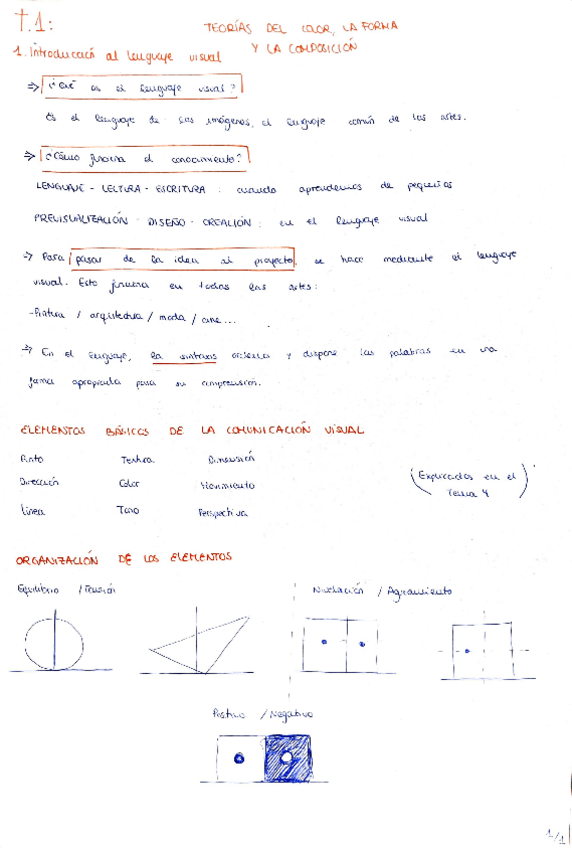 T.1:
TEORÍAS DEL COLOR, LA FORMA
Y LA COMPOSICIÓN
1. Introducción al lenguaje visual
⇒ ¿Qué es el lenguaje visual?
Es el lenguaje de las imágenes, el lenguaje común de las artes.
⇒ ¿Cómo funciona el conocimiento?
LENGUAJE - LECTURA - ESCRITURA : cuando aprendemos de pequeños
PREVISUALIZACIÓN - DISEÑO - CREACIÓN : en el lenguaje visual
⇒ Para pasar de la idea al proyecto se hace mediante el lenguaje
visual. Esto funciona en todas las artes:
-Pintura / arquitectura / moda / cine...
⇒ En el lenguaje, la sintaxis ordena y dispone las palabras en una
forma apropiada para su comprensión.
ELEMENTOS BÁSICOS DE LA COMUNICACIÓN VISUAL
Punto Textura Dimensión
Dirección Color Movimiento
Línea Tono Perspectiva
(Explicados en el
Tema 4)
ORGANIZACIÓN DE LOS ELEMENTOS
Equilibrio / Tensión
Nivelación / Agudizamiento
Positivo / Negativo
1/1